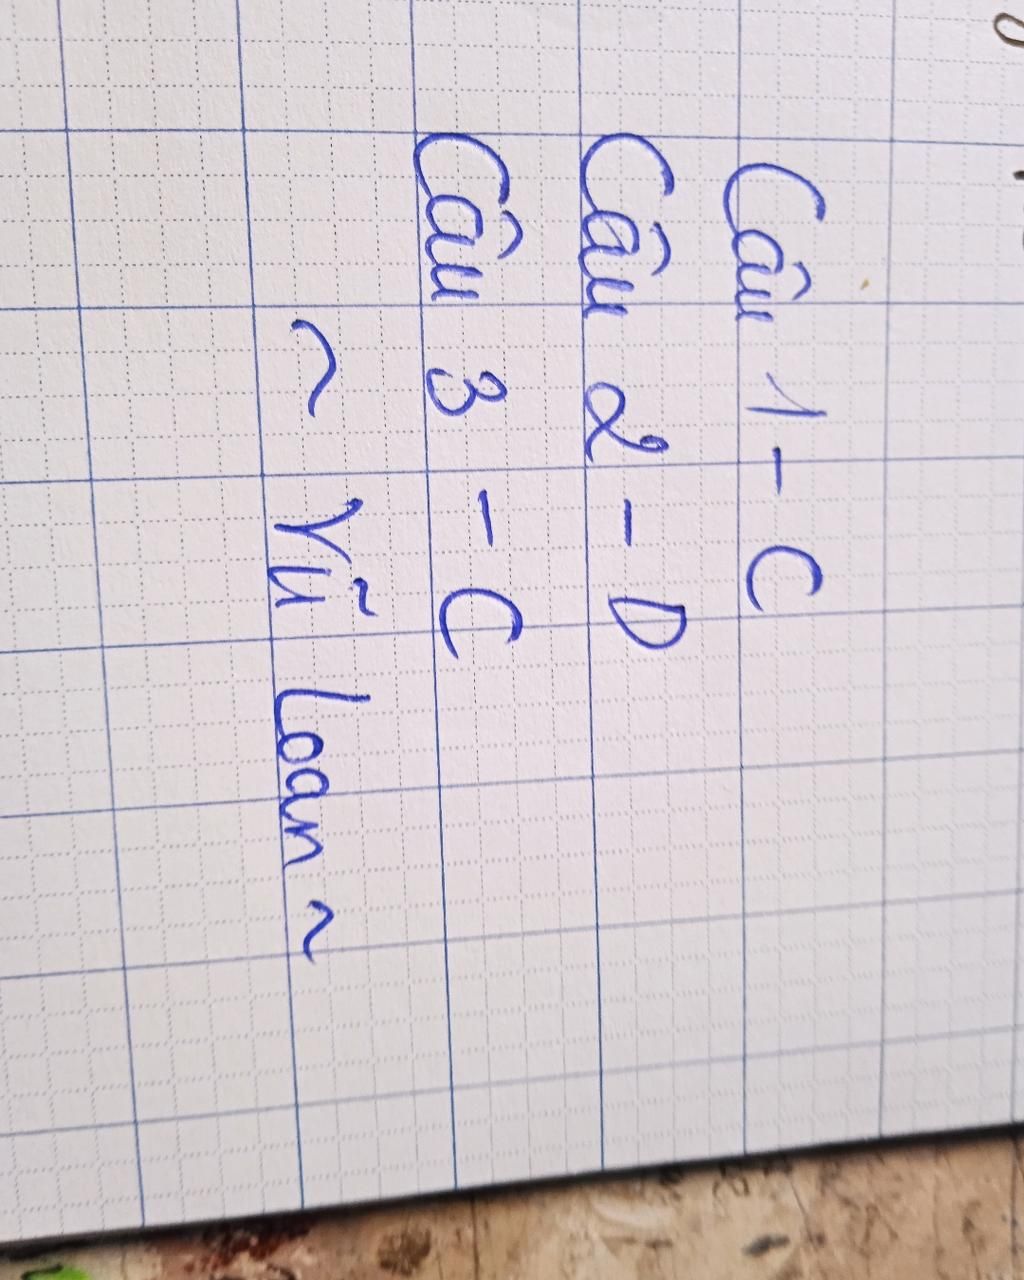 Câu 1 - C
Câu 2 - D
Câu 3 - C
~ Vũ Loan ~